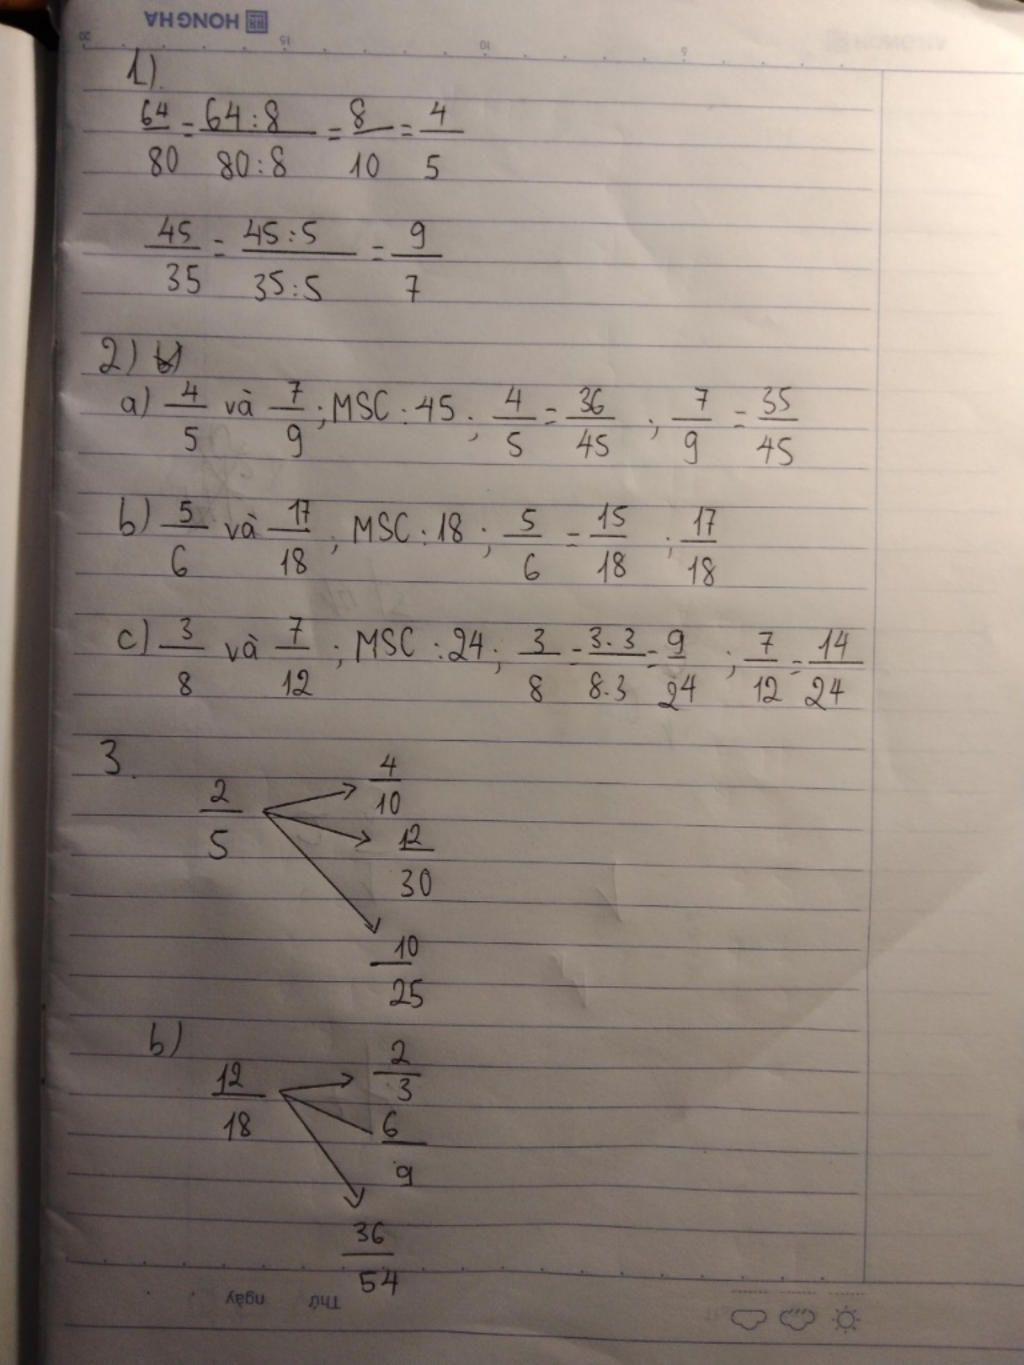 HONG HA
20 15 10 5
1)
64/80 = 64:8/80:8 = 8/10 = 4/5
45/35 = 45:5/35:5 = 9/7
2)
a) 4/5 và 7/9 ; MSC : 45 ; 4/5 = 36/45 ; 7/9 = 35/45
b) 5/6 và 17/18 ; MSC : 18 ; 5/6 = 15/18 ; 17/18
c) 3/8 và 7/12 ; MSC : 24 ; 3/8 = 3.3/8.3 = 9/24 ; 7/12 = 14/24
3.
2/5 → 4/10
→ 12/30
→ 10/25
b)
12/18 → 2/3
6/9
→ 36/54
Thứ ngày